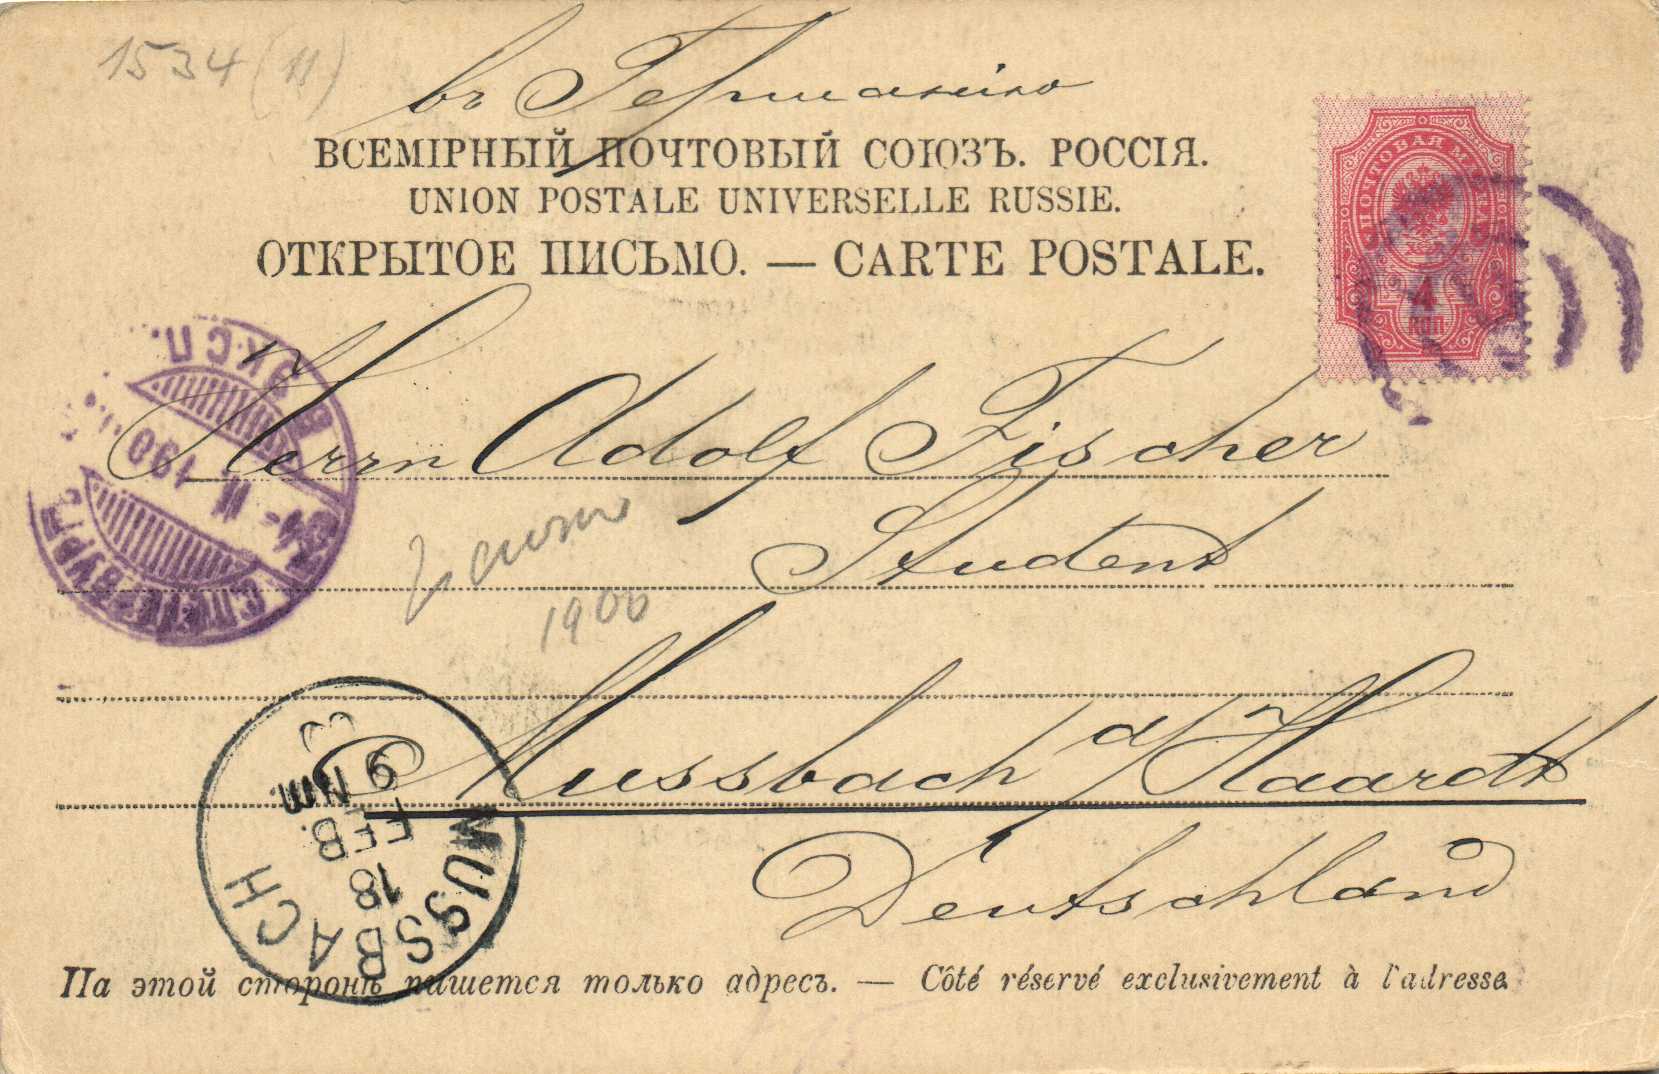 1534 (11)
въ Германію
ВСЕМІРНЫЙ ПОЧТОВЫЙ СОЮЗЪ. РОССІЯ.
UNION POSTALE UNIVERSELLE RUSSIE.
ОТКРЫТОЕ ПИСЬМО. — CARTE POSTALE.
ПОЧТОВАЯ МАРКА
4
КОП
Herrn Adolf Fischer
Student
1900
Mussbach a/Haardt
Deutschland
С.ПЕТЕРБУРГЪ
II
ЭКСП.
MUSSBACH
18
FEB.
9 Nm.
На этой сторонѣ пишется только адресъ. — Côté réservé exclusivement à l'adresse.